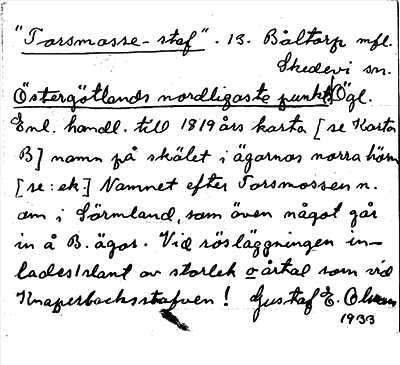 "Torsmosse-staf". 13. Båltorp mfl.
Skedevi sn.
Östergötlands nordligaste punkt! Ögl.
Enl. handl. till 1819 års karta [se Karta
B] namn på skälet i ägornas norra hörn
[se: ek] Namnet efter Torsmossen n.
om i Sörmland, som även något går
in å B. ägor. Vid rösläggningen in-
lades slant av storlek o årtal som vid
Knaperbacksstafven! Gustaf E. 
1933